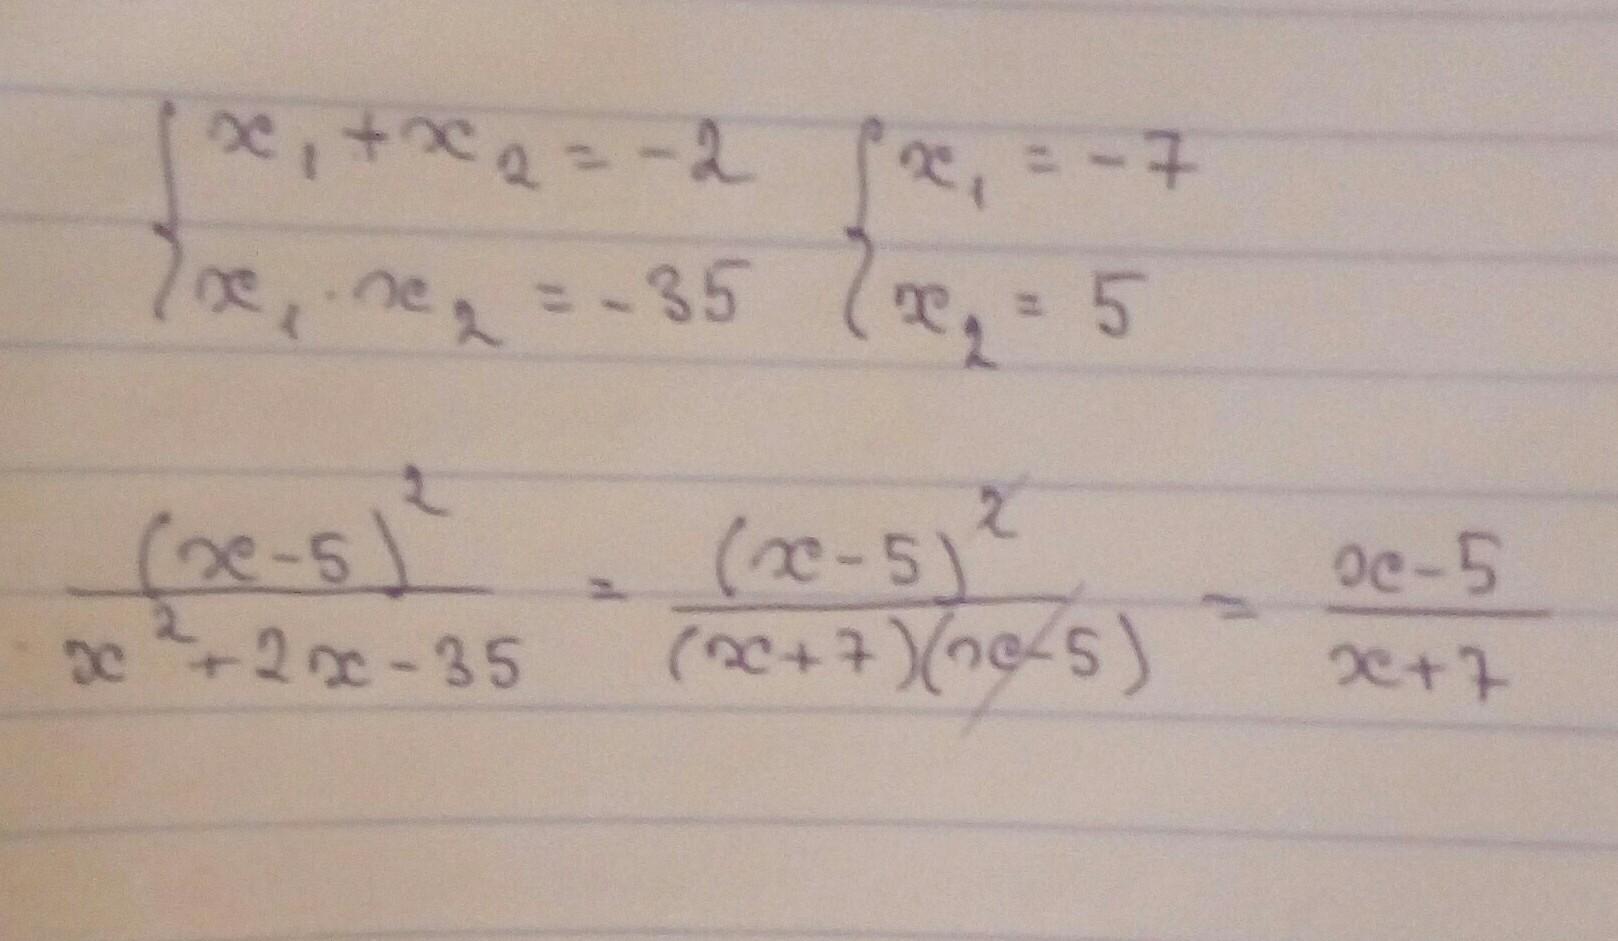 {x₁ + x₂ = -2 {x₁ = -7
{x₁ · x₂ = -35 {x₂ = 5
(x-5)²/(x²+2x-35) = (x-5)²/((x+7)(x-5)) = (x-5)/(x+7)